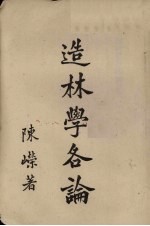 造林學各論
陳嶸著